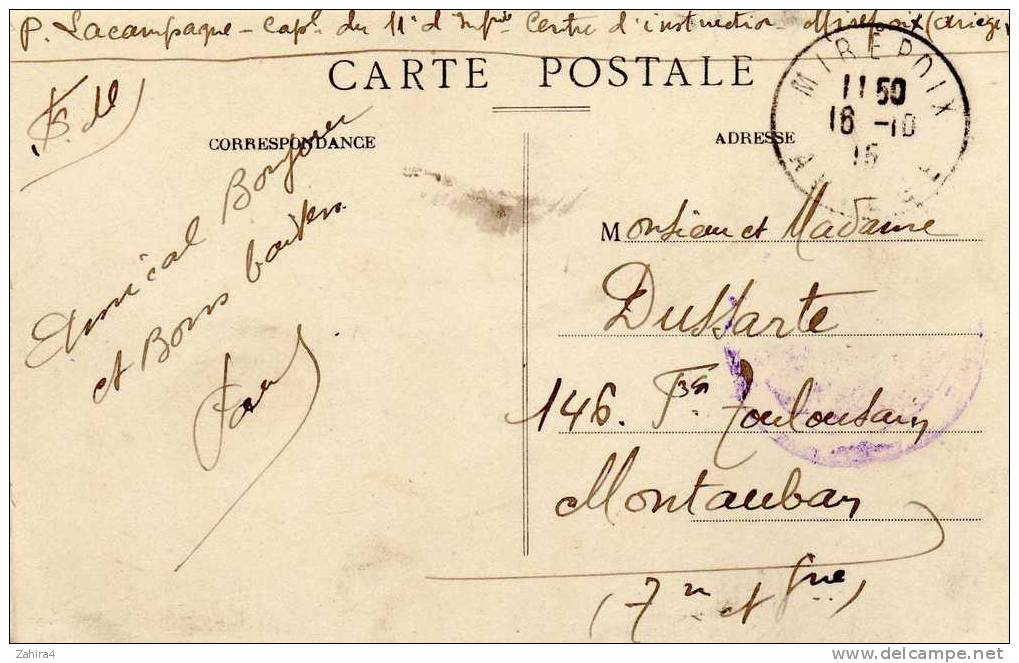 P. Lacampagne - Capl. du 11e d'Infrie Centre d'instruction Mirepoix (Ariège)
CARTE POSTALE
CORRESPONDANCE
ADRESSE
MIREPOIX
11 50
16 -10
15
F. M.
Amical Bonjour
et Bons baisers
Paul
Monsieur et Madame
Dussarte
146. Fg Toulousain
Montauban
(Tn et Gne)
Zahira4
delcampe.net